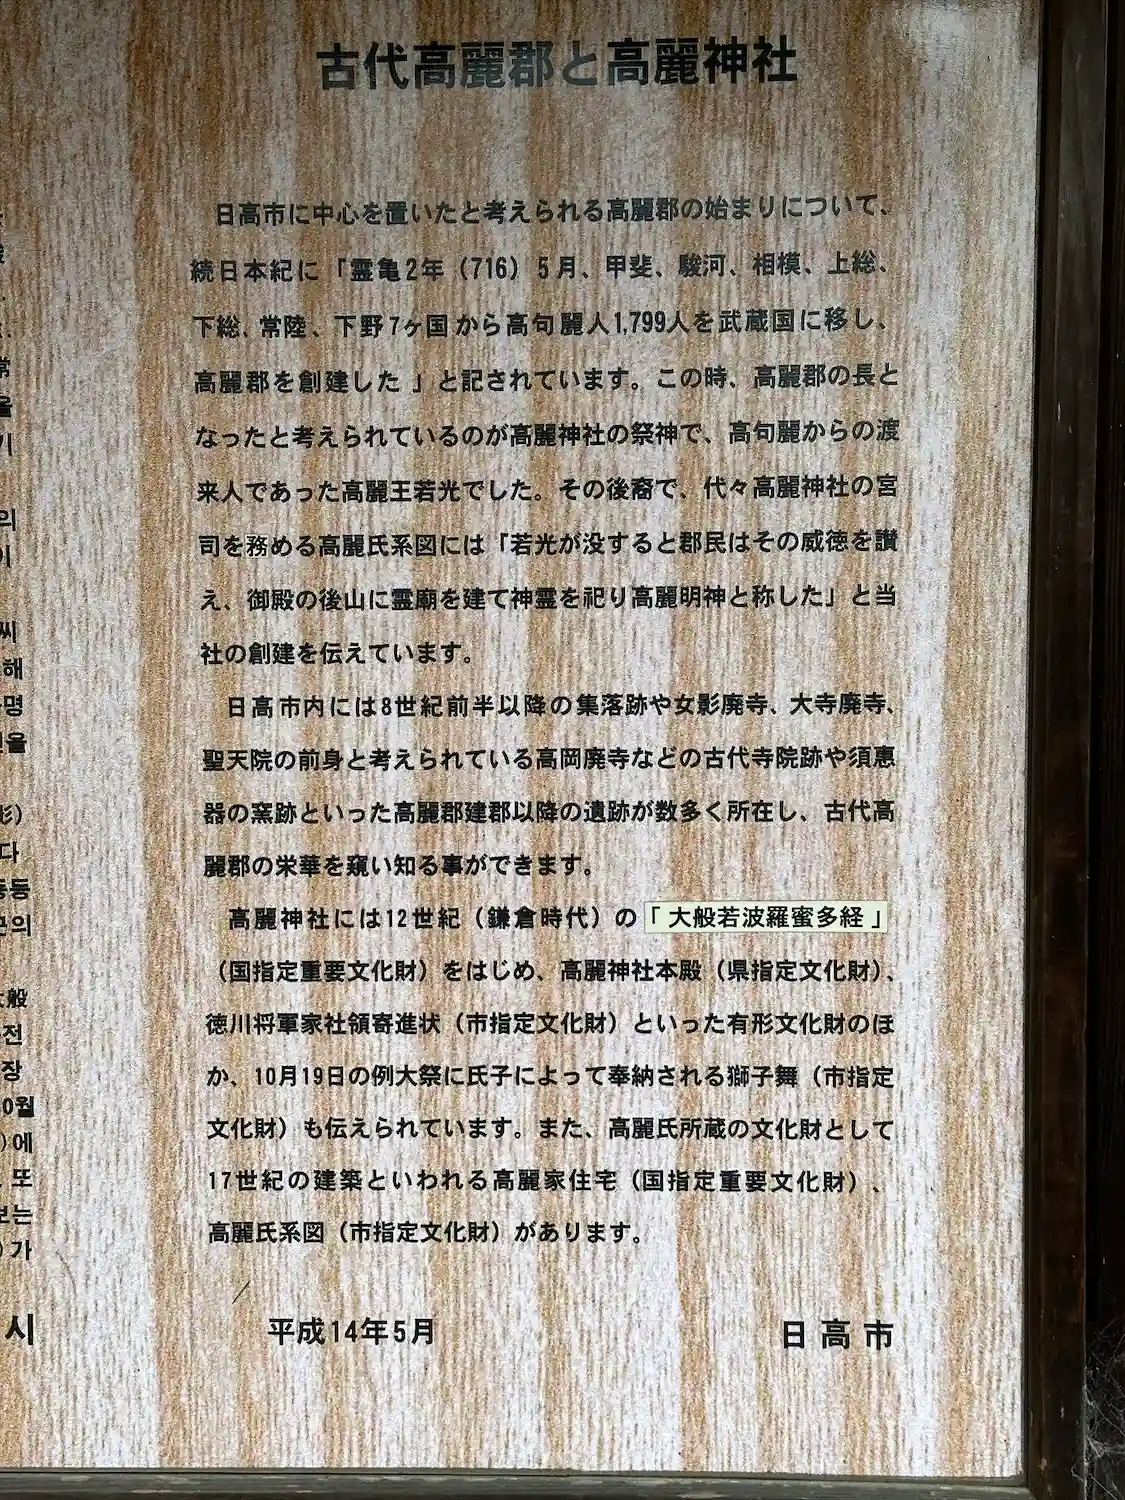 古代高麗郡と高麗神社
日高市に中心を置いたと考えられる高麗郡の始まりについて、
続日本紀に「霊亀2年（716）5月、甲斐、駿河、相模、上総、
下総、常陸、下野7ヶ国から高句麗人1,799人を武蔵国に移し、
高麗郡を創建した」と記されています。この時、高麗郡の長と
なったと考えられているのが高麗神社の祭神で、高句麗からの渡
来人であった高麗王若光でした。その後裔で、代々高麗神社の宮
司を務める高麗氏系図には「若光が没すると郡民はその威徳を讃
え、御殿の後山に霊廟を建て神霊を祀り高麗明神と称した」と当
社の創建を伝えています。
日高市内には8世紀前半以降の集落跡や女影廃寺、大寺廃寺、
聖天院の前身と考えられている高岡廃寺などの古代寺院跡や須恵
器の窯跡といった高麗郡建郡以降の遺跡が数多く所在し、古代高
麗郡の栄華を窺い知る事ができます。
高麗神社には12世紀（鎌倉時代）の「大般若波羅蜜多経」
（国指定重要文化財）をはじめ、高麗神社本殿（県指定文化財）、
徳川将軍家社領寄進状（市指定文化財）といった有形文化財のほ
か、10月19日の例大祭に氏子によって奉納される獅子舞（市指定
文化財）も伝えられています。また、高麗氏所蔵の文化財として
17世紀の建築といわれる高麗家住宅（国指定重要文化財）、
高麗氏系図（市指定文化財）があります。
平成14年5月 日高市
常
을
기
의
씨
해
명
을
다
등
의
般
전
장
0월
)에
또
는
)가
시